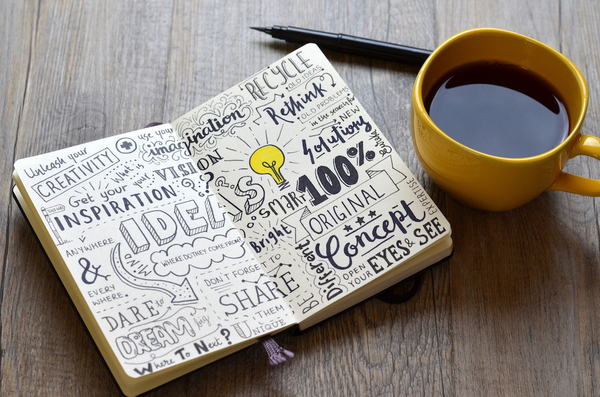 Unleash your
CREATIVITY
use your
imagination
what
Get your
VISION
INSPIRATION
ON
IDEAS
ANYWHERE
&
EVERY
WHERE
MIND
WHERE DO THEY COME FROM?
DON'T FORGET TO
SHARE
THEM
DARE to
DREAM big
UNIQUE
Where To Next?
RECYCLE
OLD IDEAS
Rethink
OLD PROBLEMS
in the search for
NEW
Solutions
SMART
100%
ORIGINAL
Bright
Concept
EXPERTISE
BE
Different
OPEN
YOUR
EYES & SEE